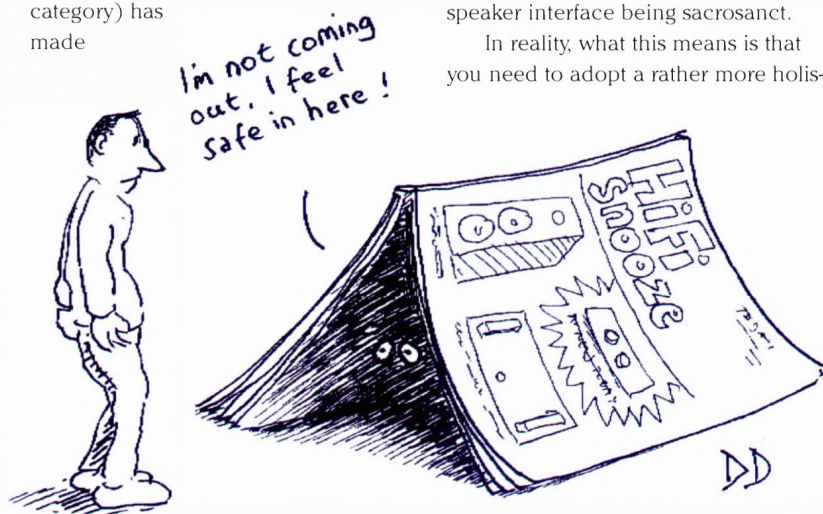 category) has
made
speaker interface being sacrosanct.
In reality, what this means is that
you need to adopt a rather more holis-
I'm not coming
out, I feel
safe in here !
HiFi
Snooze
DD